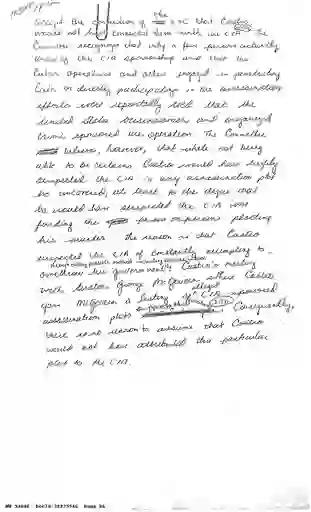 accept the conclusion of the SSC that Castro
would not have connected them with the CIA. The
Committee recognizes that only a few persons actually
knew of the CIA sponsorship and that the
Cuban operatives and others engaged in penetrating
Cuba or directly participating in the assassination
efforts were reportedly told that the
United States businessmen and organized
crime sponsored the operation. The Committee
believes, however, that while not being
able to be certain Castro would have highly
suspected the CIA in any assassination plot
he uncovered, at least to the degree that
he would have suspected the CIA was
funding the person or persons plotting
his murder. The reason is that Castro
suspected the CIA of constantly attempting to
overthrow his government
Castro's meeting
with Senator George McGovern where Castro
gave McGovern a listing of alleged CIA sponsored
assassination plots Consequently,
there is no reason to assume that Castro
would not have attributed this particular
plot to the CIA.